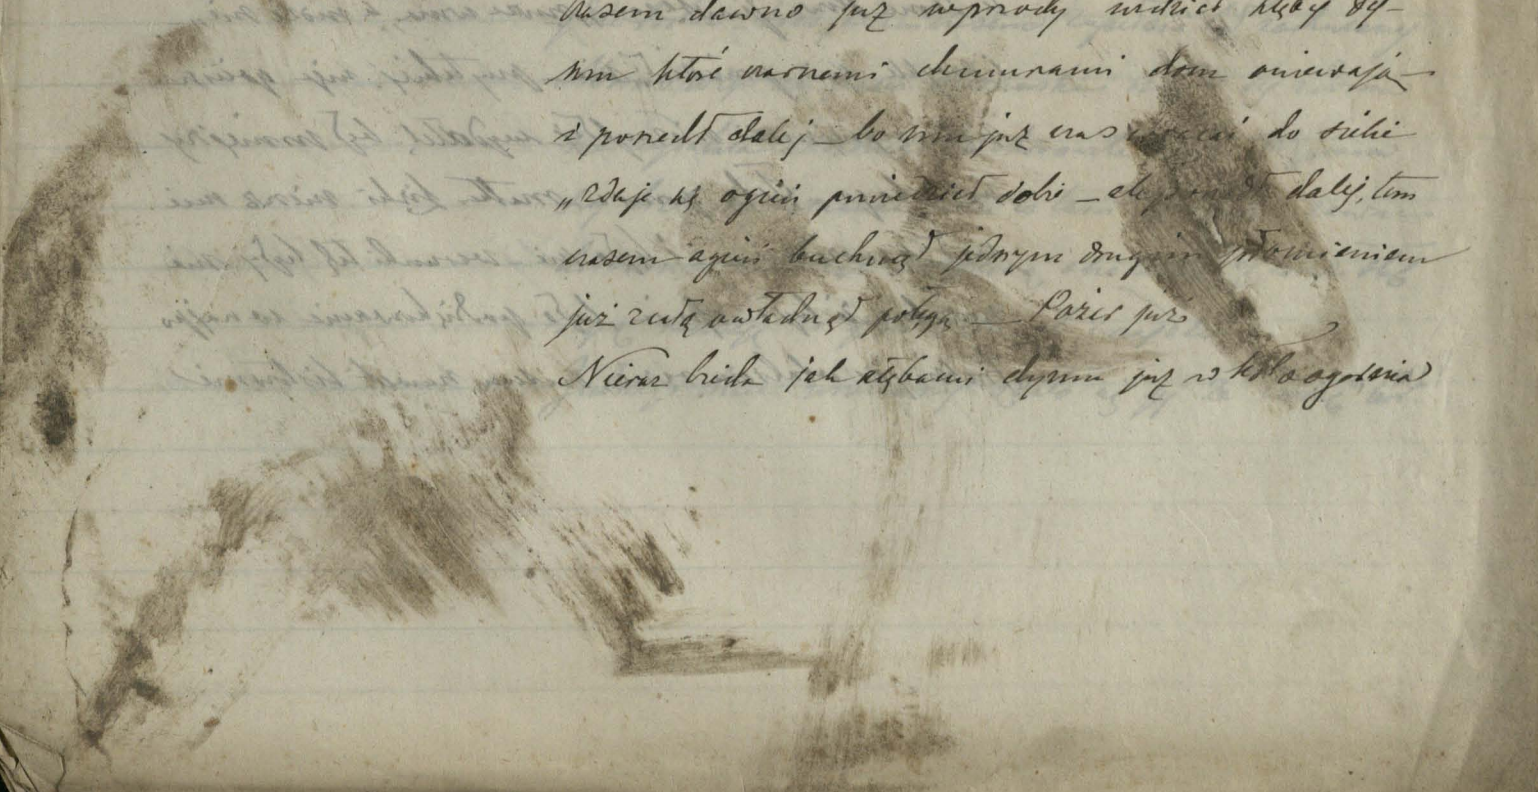 czasem dawno już wprzody widział kłęby dy-
mu które czarnemi chmurami dom owiewają
i poszedł dalej – bo mu już czas wracać do siebie
„zdaje się ogień powiedział sobie – ale poszedł dalej, tem
czasem ogień buchnął jednym drugim płomieniem
już całą owładnął potęgą — Pożar już
Nieraz bieda jak kłębami dymu już w koło ogarnia